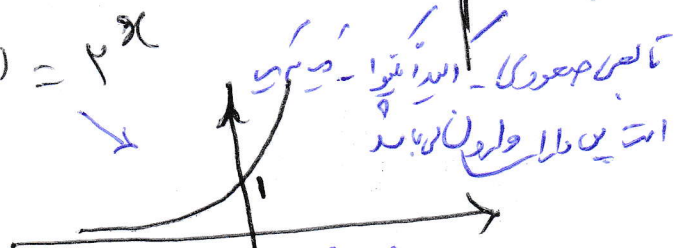 ) = ۲^x
تابعی صعودی - اکیداً یکنوا - یک به یک
است پس دارای وارون می‌باشد
۱